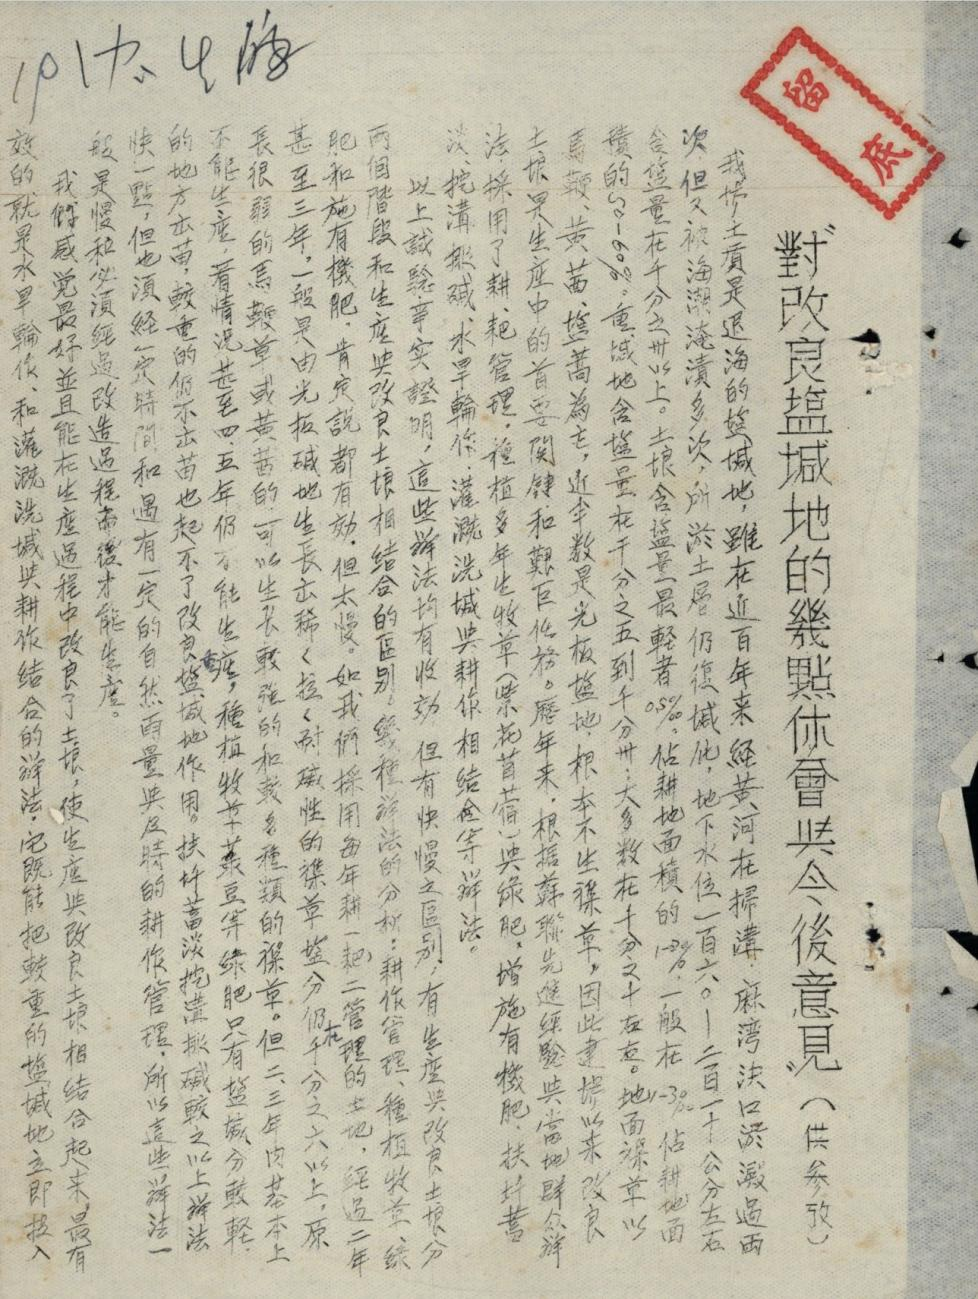 留底
"對改良塩堿地的幾點体會與今後意見"（供參攷）
我場土質是退海的塩堿地，雖在近百年来経黄河在掃溝．麻湾决口淤澱過両
次，但又被海潮淹漬多次，所淤土層仍復堿化，地下水位一百六〇—二百一十公分左右
含塩量在千分之卅以上。土壤含塩量最軽者0.5‰．佔耕地面積的1-2%．一般在1-3‰佔耕地面
積的50-60%。重堿地含塩量在千分之五到千分卅：大多数在千分之十左右。地面襍草以
馬鞭、黄茜、塩蒿為主，近半数是光板塩地．根本不生襍草。因此建場以来改良
土壤是生産中的首要関鍵．和艱巨任務。歷年来．根据蘇聯先進経驗與當地群众辦
法．採用了耕．耙管理．種植多年生牧草（紫花苜蓿）與緑肥．增施有機肥．扶圩蓄
淡、挖溝排碱、水旱輪作．灌溉洗堿與耕作相結合等辦法。
以上試驗事实證明，這些辦法均有收効 但有快慢之區别，有生産與改良土壤分
両個階段和生産與改良土壤相結合的區别。幾種辦法的分析：耕作管理、種植牧草、緑
肥和施有機肥．肯定説都有効．但太慢。如我們採用每年耕一耙二管理的土地，経過二年
甚至三年，一般是由光板碱地生長出稀〻拉〻耐碱性的襍草塩分仍在千分之六以上，原
長很弱的馬鞭草或黄茜的．可以生長較強的和較多種類的襍草。但二、三年内基本上
不能生産，着情况甚至四．五年仍不能生産，種植牧草菉豆等緑肥只有塩堿分較軽．
的地方出苗，較重的仍不出苗也起不了改良塩堿地作用。扶圩蓄淡挖溝排碱較之以上辦法
快一點，但也須経一定時間和遇有一定的自然雨量與及時的耕作管理．所以這些辦法一
般是慢和必須経過改造過程而後才能生産。
我們感覚最好並且能在生産過程中改良了土壤，使生産與改良土壤相結合起来，最有
效的就是水旱輪作、和灌溉洗堿與耕作結合的辦法．它既能把較重的塩堿地立即投入